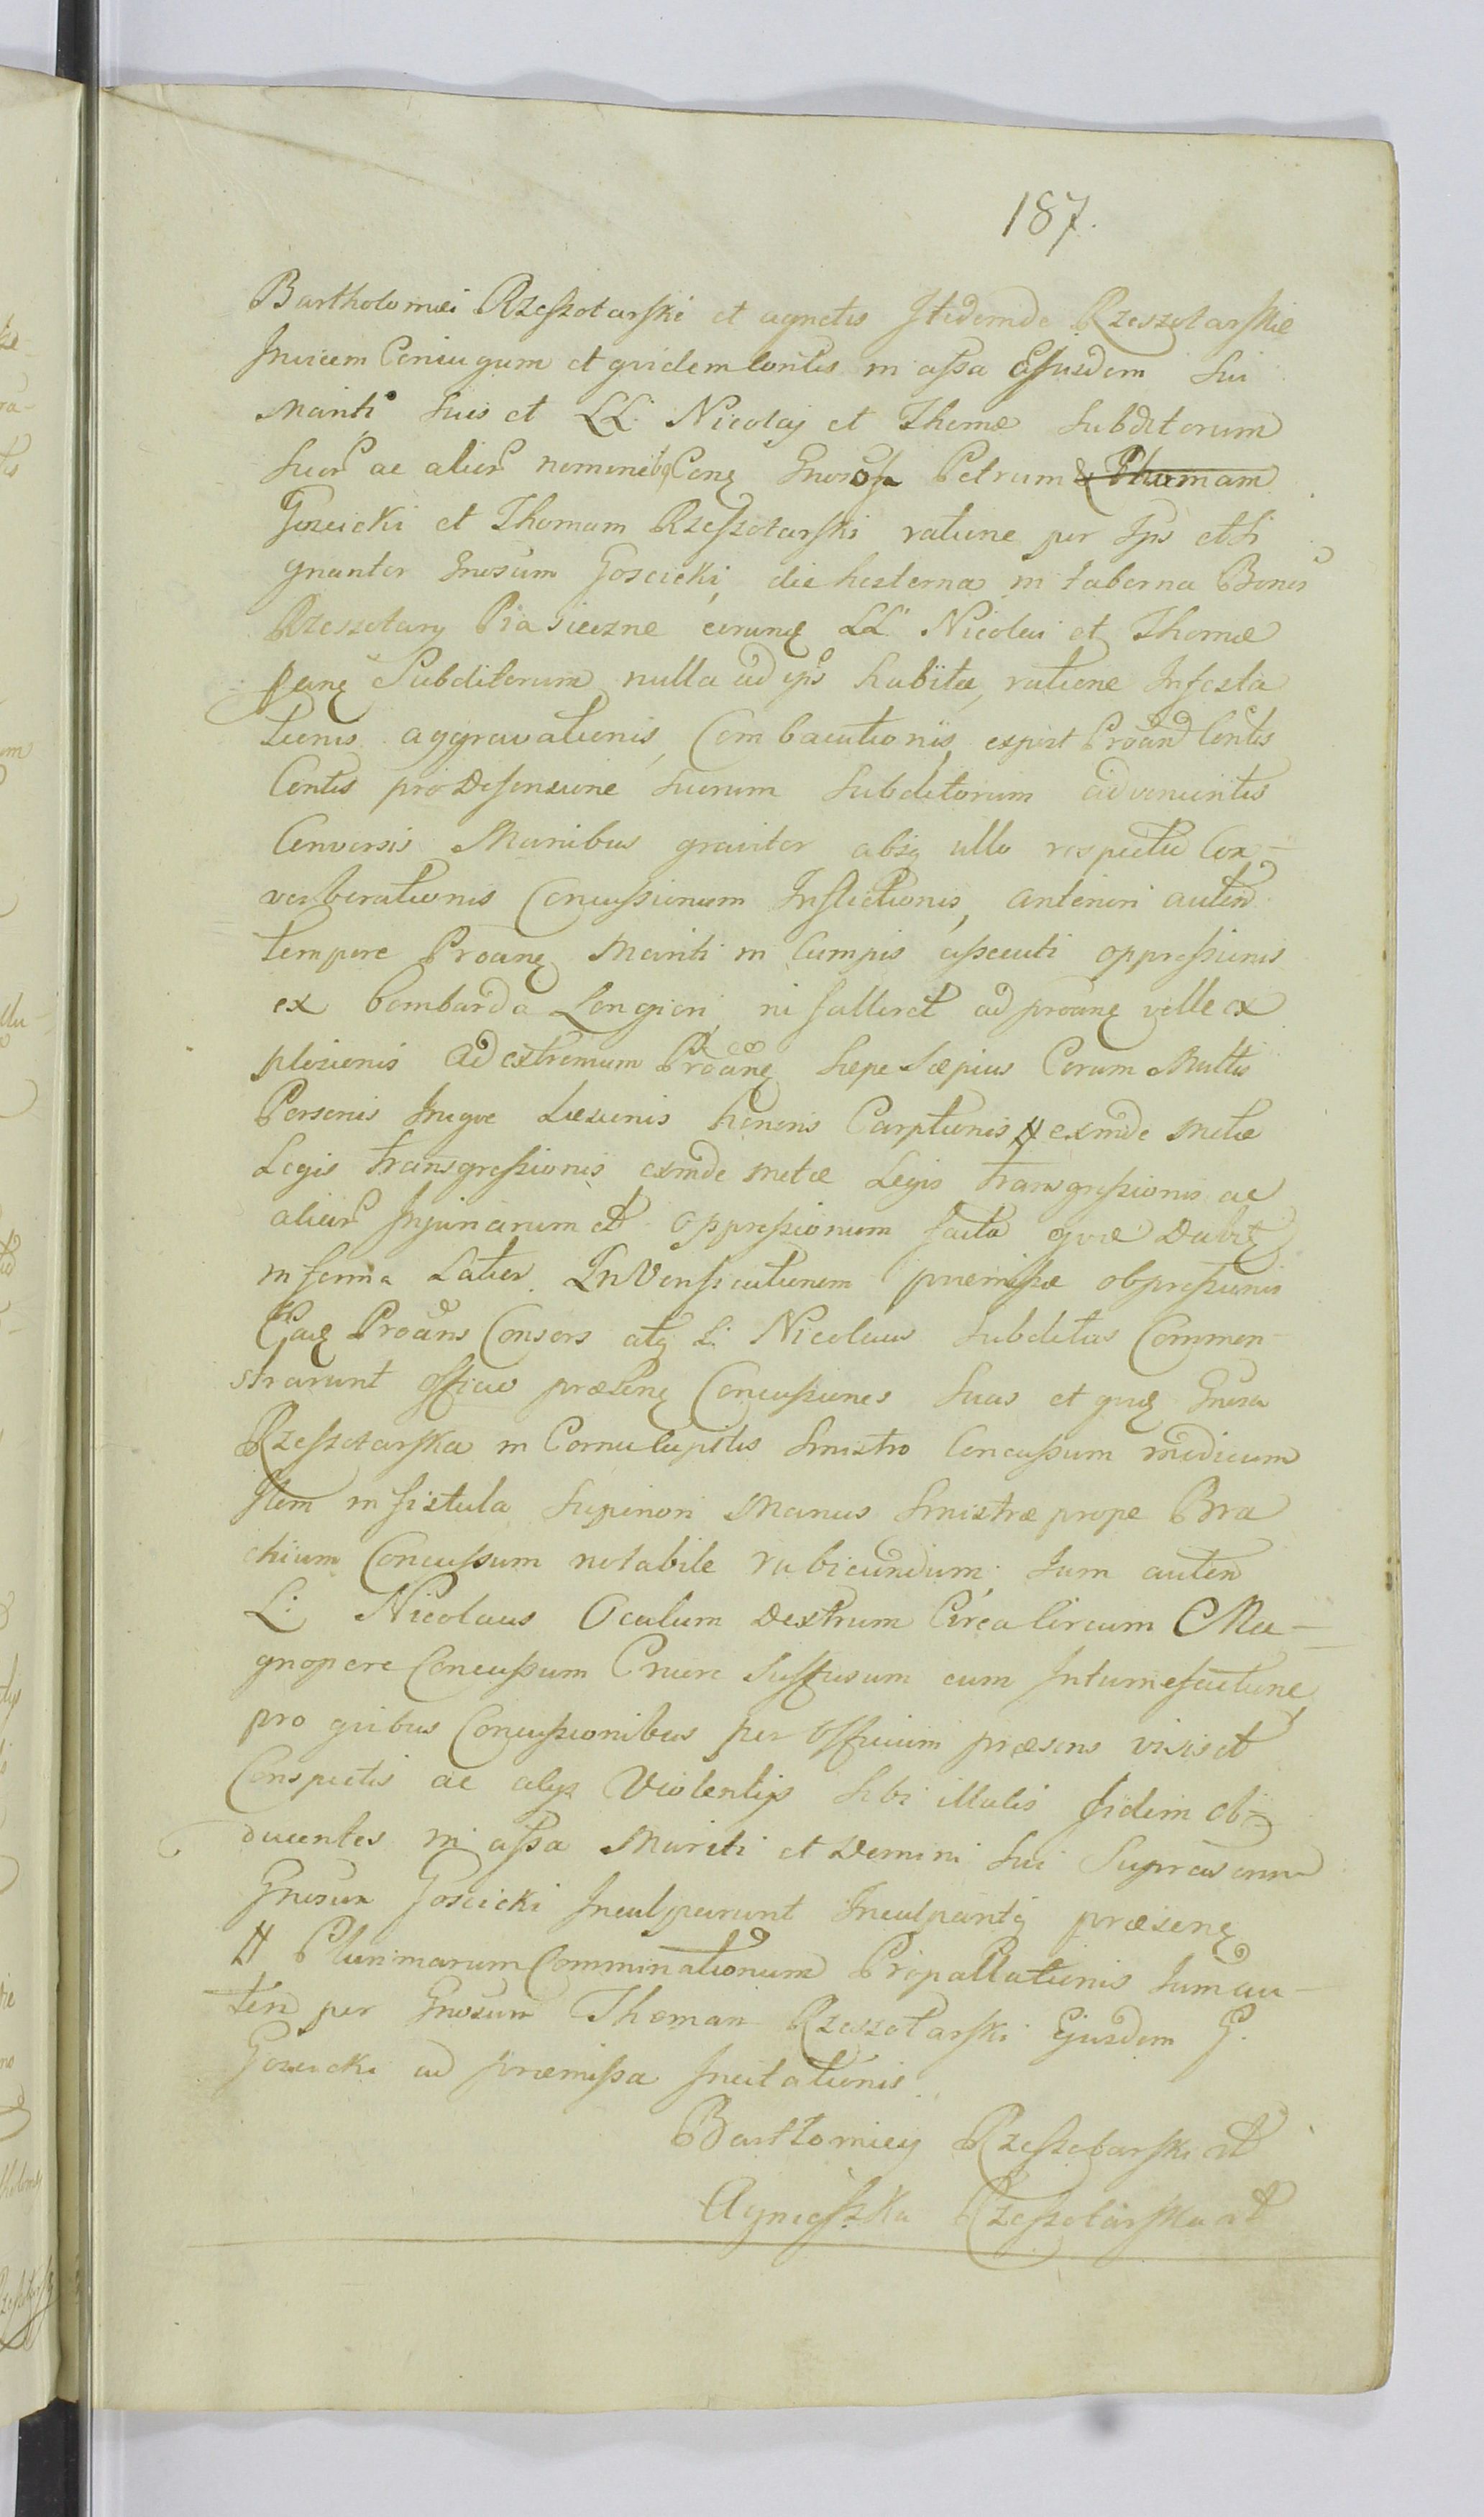 187.
Bartholomæi Rzeszotarski et agnetis Itidemde Rzeszotarskie
Invicem Coniugum et qvidem Contis in assa Ejusdem Sui
Mariti Suis et LL. Nicolaj et Thomæ Subditorum
Suor ac alior nominibq Conq Gnosos Petrum & Thomam
Goscicki et Thomam Rzeszotarski ratione per Ips etsi
gnanter Gnosum Goscicki, die hesterna in taberna Bonor
Rzeszotary Piasieczne eorunq LL. Nicolai et Thomæ
panq Subditorum nulla ad ips habita, ratione Infesta
tionis aggravationis, Combacutionis, expist Proand Contis
Contis pro Defensione suorum subditorum advenientis
Conversis Manibus graviter absq ullo respectu Con-
verberationis Concussionum Inflictionis, anteriori auten
tempore Proanq Mariti in Campis assecuti oppressionis
ex bombarda Longiori, ni falleret ad proanq velle ex
plosionis Ad extremum Proanq Sæpe Sæpius Coram Multis
Personis Inqve Læsionis honoris Carptionis # exinde Metæ
Legis transgressionis exinde Metæ Legis transgressionis ac
aliar Injuriarum et oppressionum facta qvæ Dabitq
in forma Latior. In Versicutionem præmissæ obpressionis
Eaq Proans Consors atq L. Nicolaus Subditus Common-
strarunt officio præsenq Concussiones Suas et qvidq Gnosa
Rzeszotarska in Cornu capitis Sinistro Concussum modicum
Item in fistula Superiori Manus Sinistræ prope Bra
chium Concussum notabile rubicundum. Tum auten
L. Nicolaus Oculum Dextrum Circa Circum Ma-
gnopere Concussum Cruore Suffusum cum Intumefactione,
pro qvibus Concussionibus per Officium præsens visis et
Conspectis ac alys Violentijs Sibi illatis fidem ob-
ducentes in assa Mariti et Domini Sui Supra
Gnosum Goscicki Inculparunt Inculpantq præsenq
# Plurimarum Comminationum Propallationis Tum au-
ten per Gnosum Thoman Rzeszotarski Ejusdem G.
Goscicki ad præmissa Incitationis.
Bartłomiey Rzeszotarski et
Agnieszka Rzeszotarska et